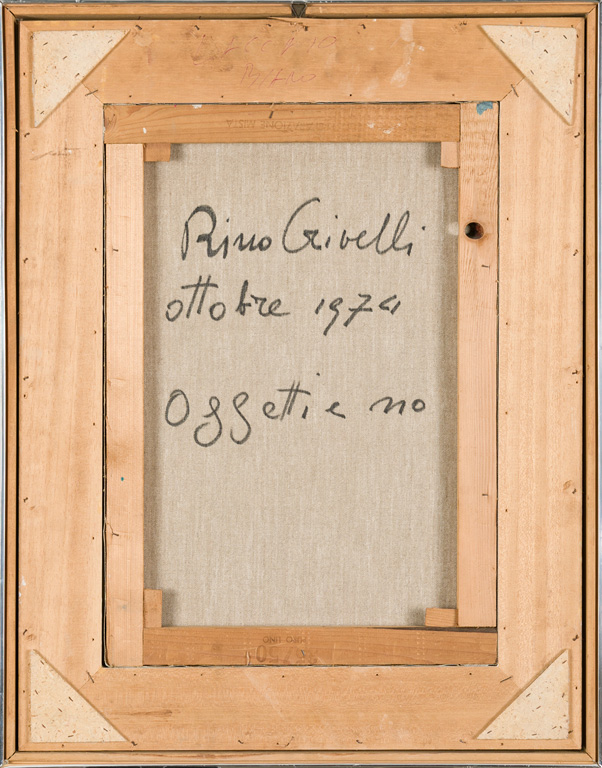 Rino Crivelli
ottobre 1974
Oggetti e no
PURO LINO